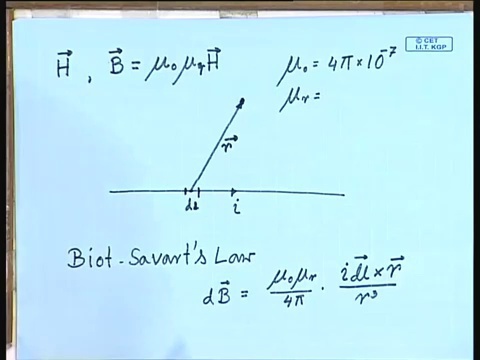 © CET
I.I.T. KGP
H⃗ , B⃗ = μ₀μᵣH⃗
μ₀ = 4π×10⁻⁷
μᵣ =
r⃗
dl i
Biot-Savart's Law
dB⃗ = μ₀μᵣ/4π · i dl⃗ × r⃗ / r³